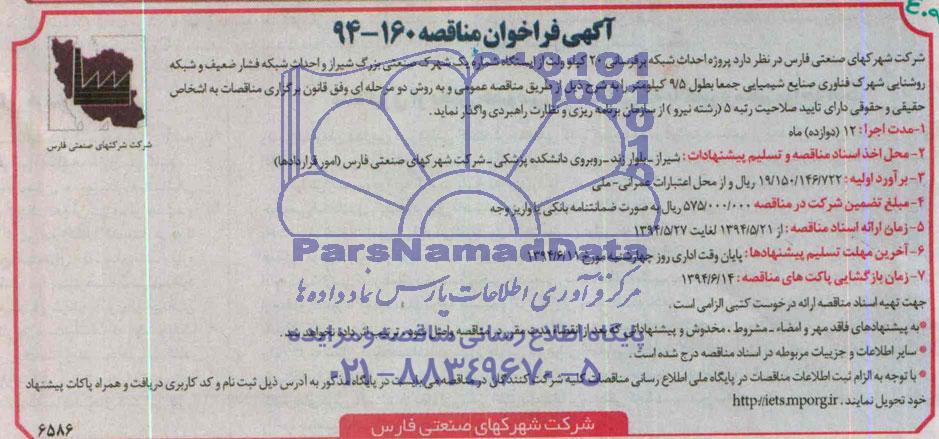 آگهی فراخوان مناقصه ۱۶۰-۹۴
شرکت شهرکهای صنعتی فارس در نظر دارد پروژه احداث شبکه برقرسانی ۲۰ کیلو ولت از ایستگاه شماره یک شهرک صنعتی بزرگ شیراز و احداث شبکه فشار ضعیف و شبکه
روشنایی شهرک فناوری صنایع شیمیایی جمعا بطول ۹/۵ کیلومتر را به شرح ذیل از طریق مناقصه عمومی و به روش دو مرحله ای وفق قانون برگزاری مناقصات به اشخاص
حقیقی و حقوقی دارای تایید صلاحیت رتبه ۵ (رشته نیرو) از سازمان برنامه ریزی و نظارت راهبردی واگذار نماید.
۱-مدت اجرا: ۱۲ (دوازده) ماه
۲- محل اخذ اسناد مناقصه و تسلیم پیشنهادات: شیراز - بلوار زند - روبروی دانشکده پزشکی - شرکت شهرکهای صنعتی فارس (امور قراردادها)
۳- برآورد اولیه: ۱۹/۱۵۰/۱۴۶/۷۲۲ ریال و از محل اعتبارات عمرانی - ملی
۴- مبلغ تضمین شرکت در مناقصه ۵۷۵/۰۰۰/۰۰۰ ریال به صورت ضمانتنامه بانکی یا واریز وجه
۵- زمان ارائه اسناد مناقصه: از ۱۳۹۴/۵/۲۱ لغایت ۱۳۹۴/۵/۲۷
۶- آخرین مهلت تسلیم پیشنهادها: پایان وقت اداری روز چهارشنبه مورخ
۷- زمان بازگشایی پاکت های مناقصه: ۱۳۹۴/۶/۱۴
جهت تهیه اسناد مناقصه ارائه درخوست کتبی الزامی است.
* به پیشنهادهای فاقد مهر و امضاء - مشروط - مخدوش و پیشنهاداتی که بعد از انقضاء مدت مقرر در مناقصه واصل شود، ترتیب اثر داده نخواهد شد.
* سایر اطلاعات و جزییات مربوطه در اسناد مناقصه درج شده است.
* با توجه به الزام ثبت اطلاعات مناقصات در پایگاه ملی اطلاع رسانی مناقصات کلیه شرکت کنندگان در مناقصه می بایست در پایگاه مذکور به آدرس ذیل ثبت نام و کد کاربری دریافت و همراه پاکات پیشنهاد
خود تحویل نمایند. http://iets.mporg.ir
شرکت شهرکهای صنعتی فارس
۶۵۸۶
شرکت شرکتهای صنعتی فارس
ParsNamadData
مرکز فرآوری اطلاعات پارس نماد داده ها
پایگاه اطلاع رسانی مناقصه و مزایده
۰۲۱-۸۸۳۴۹۶۷۰-۵